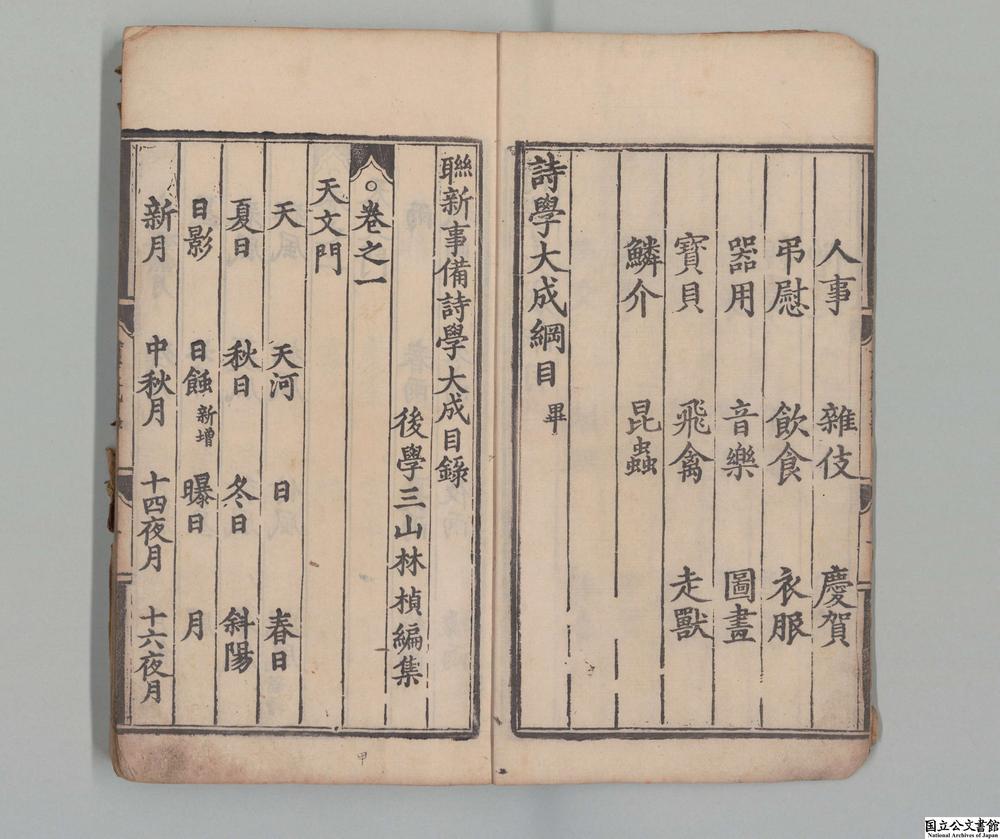 人事 雜伎 慶賀
弔慰 飲食 衣服
器用 音樂 圖畫
寶貝 飛禽 走獸
鱗介 昆蟲
詩學大成綱目 畢
聯新事備詩學大成目錄
後學三山林楨編集
○卷之一
天文門
天 天河 日 春日
夏日 秋日 冬日 斜陽
日影 日蝕 新增 曝日 月
新月 中秋月 十四夜月 十六夜月
甲
国立公文書館
National Archives of Japan